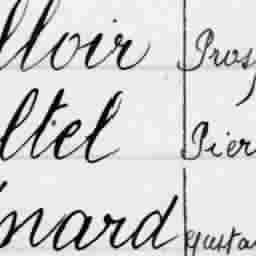 lloir Pros
ltel Pier
nard Gusta